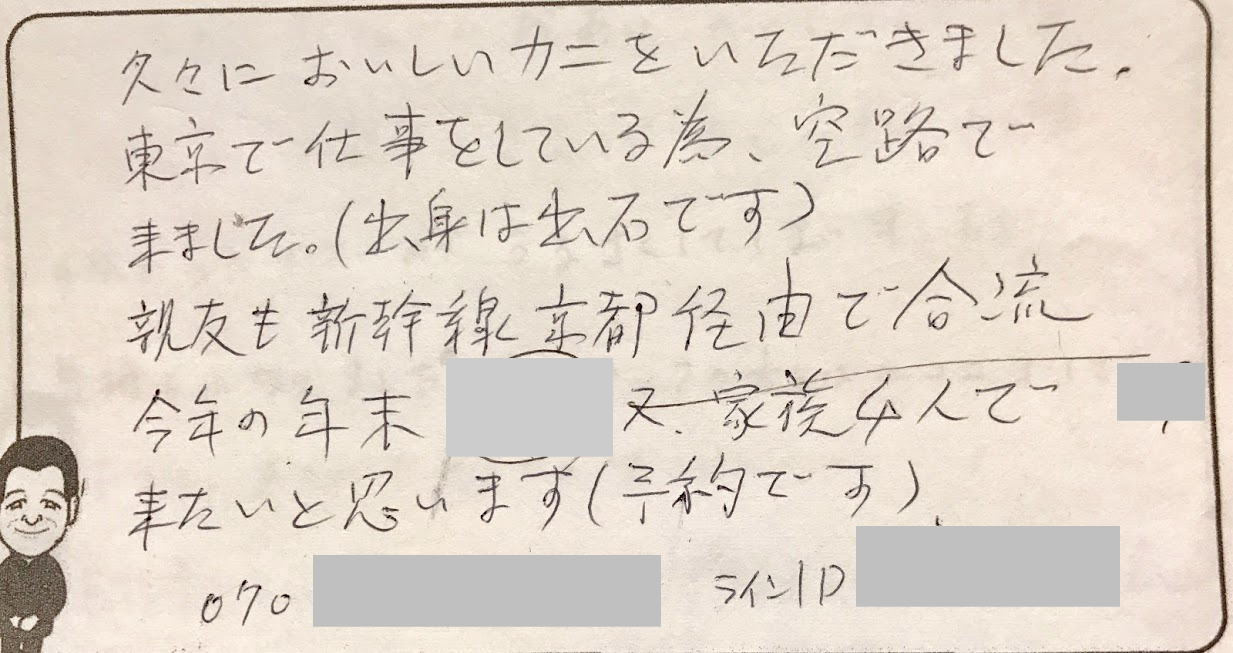 久々においしいカニをいただきました。
東京で仕事をしている為、空路で
来ました。(出身は出石です)
親友も新幹線京都経由で合流
今年の年末 又、家族4人で
来たいと思います(予約です)
070 ラインID